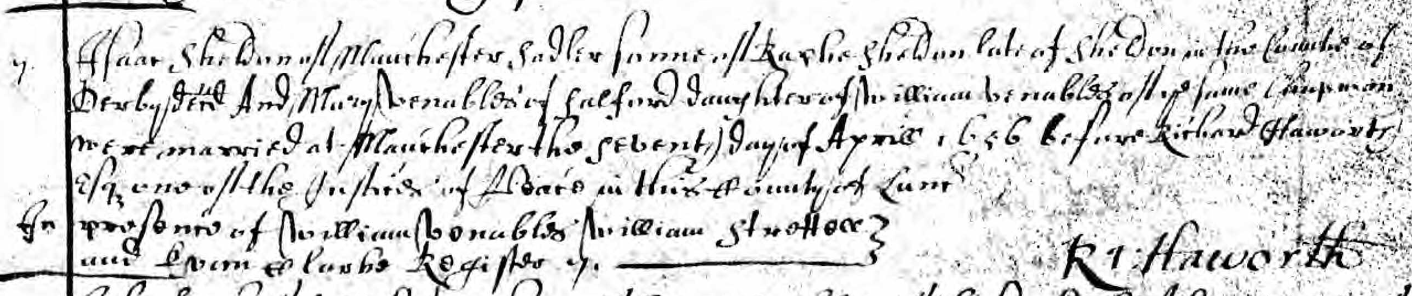 7. Isaac Sheldon of Manchester Sadler sonne of Raphe Sheldon late of Sheldon in the Countie of
Derby decd And Mary Venables of Salford daughter of William Venables of ye same Chapman
were married at Manchester the seventh day of Aprill 1656 before Richard Haworth
Esqz one of the Justices of Peace in this County of Lanc
In presence of William Venables William Strettell
and Evan Clarke Register
Ri: Haworth